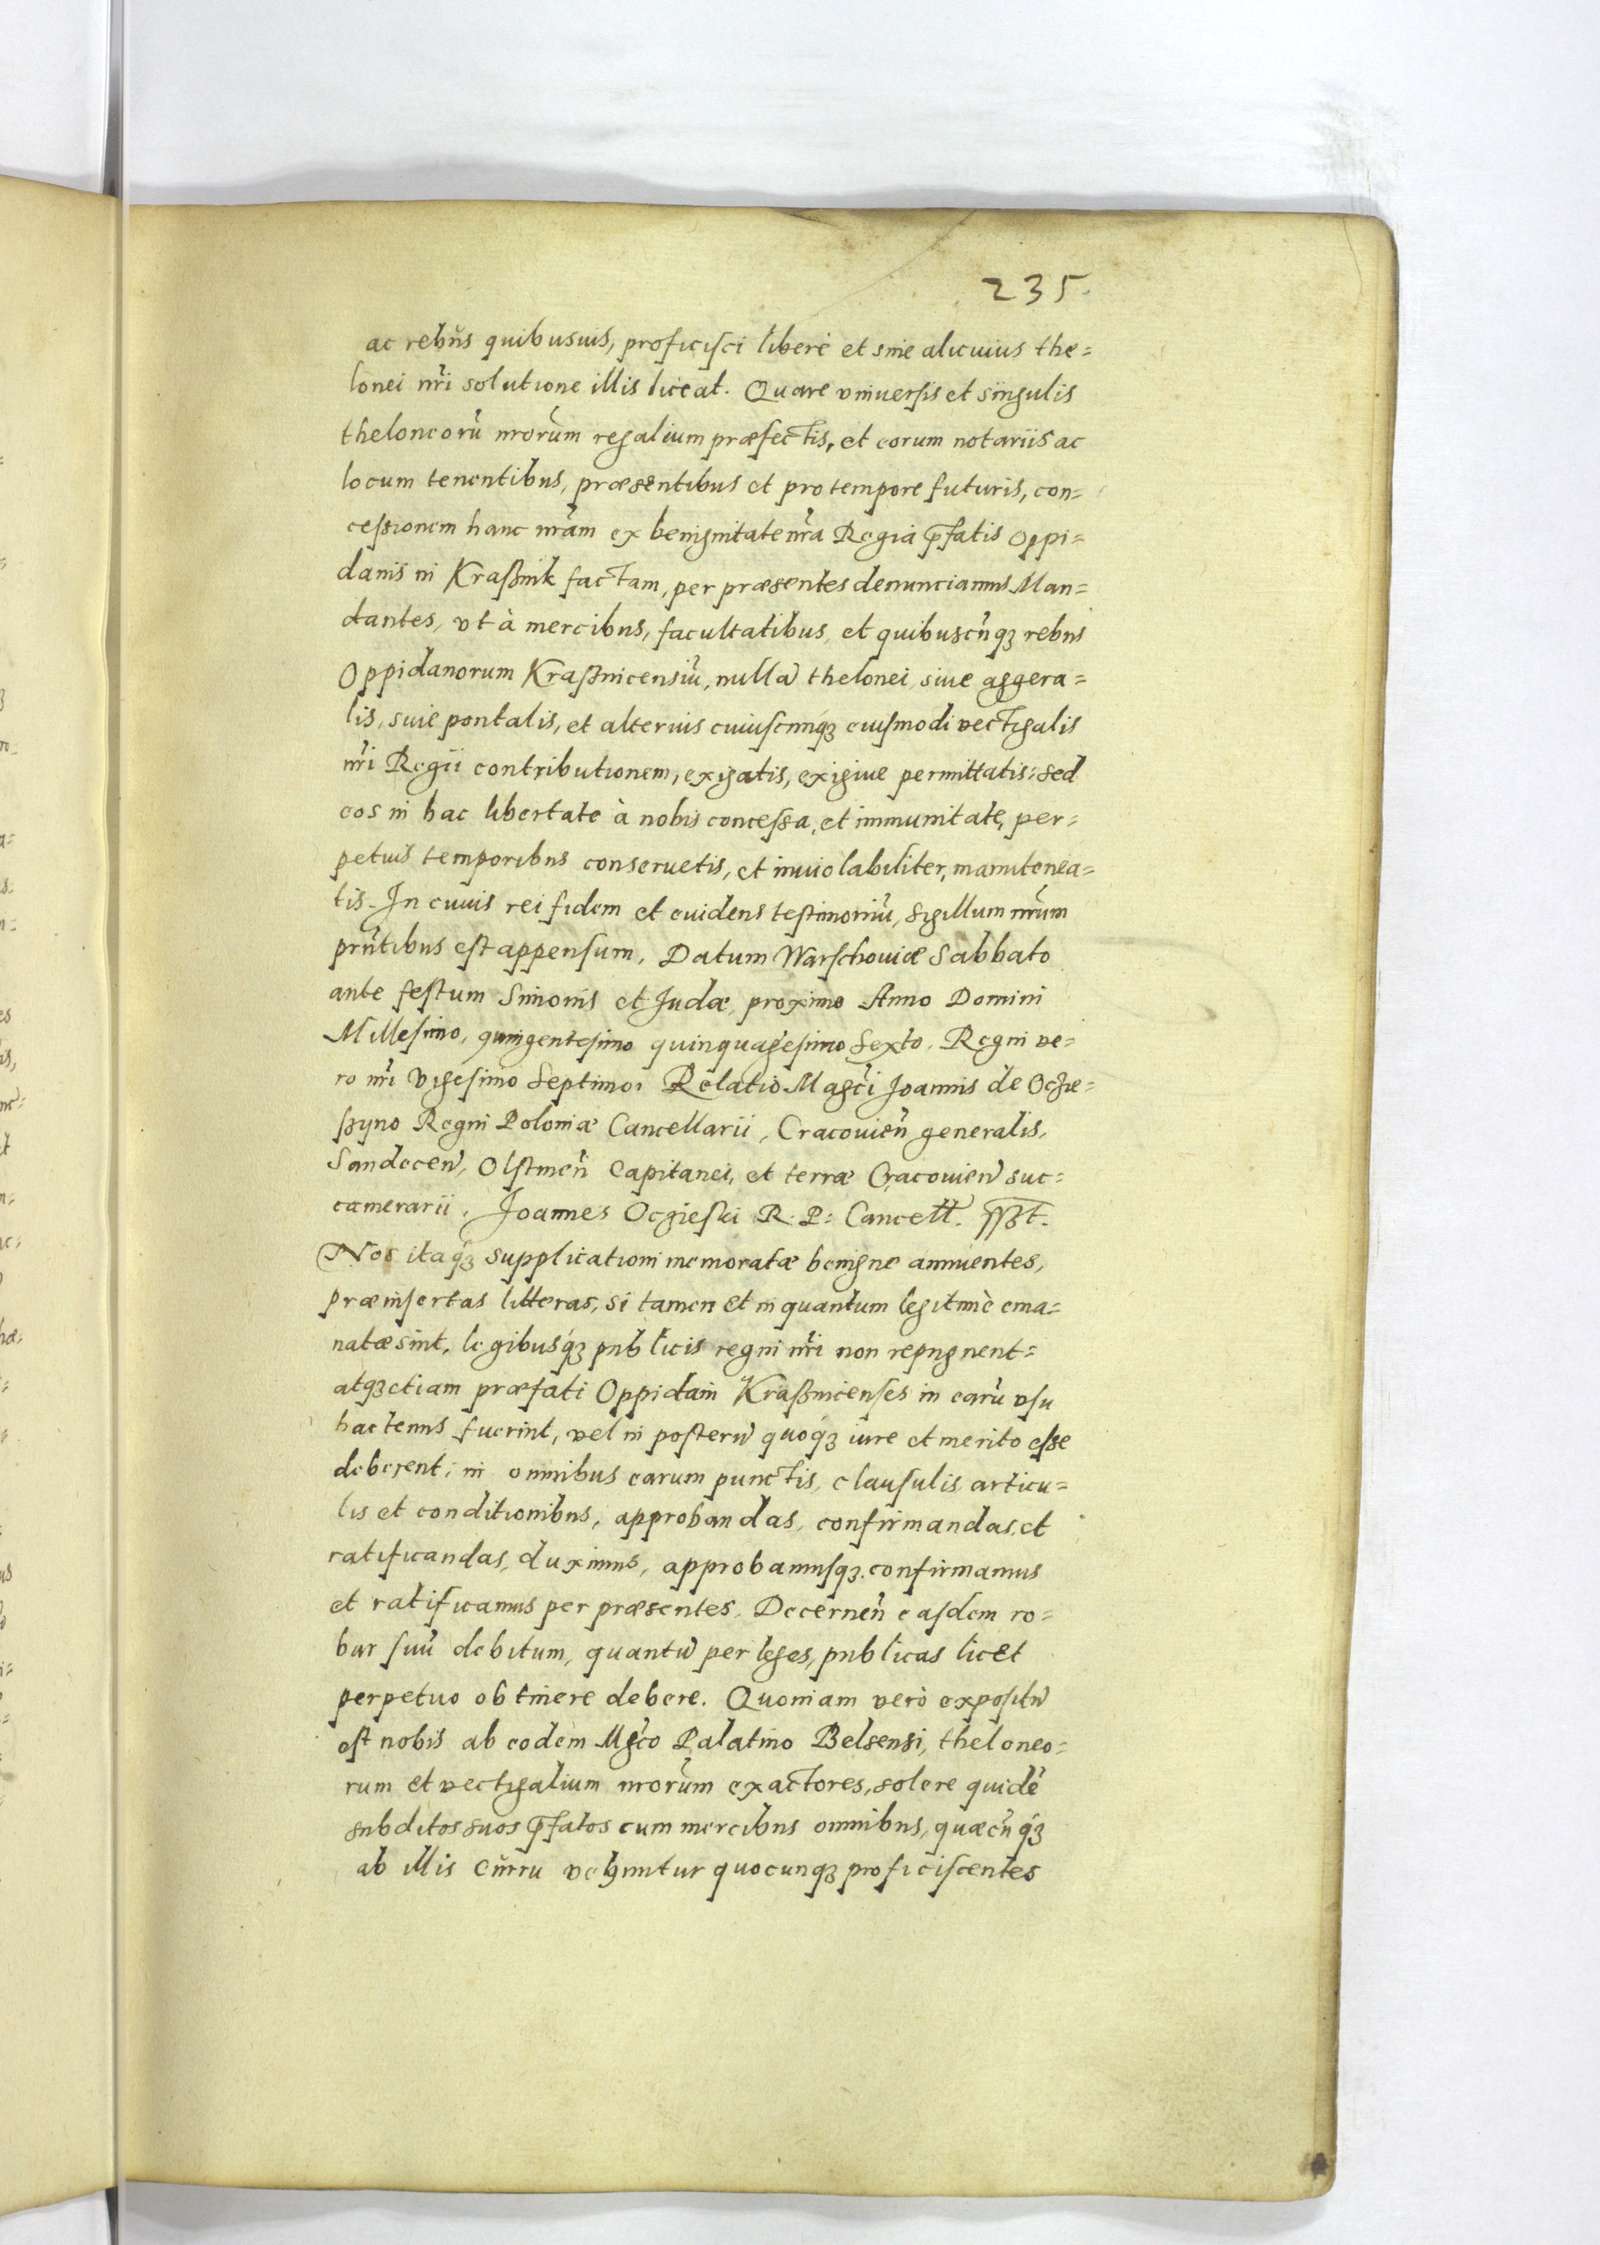 235.
ac rebūs quibusuis, proficisci liberè et sine alicuius the=
lonei nr̃i solutione illis liceat. Quare vniuersis et singulis
theloneorũ nrorũm regalium præfectis, et eorum notariis ac
locum tenentibus, præsentibus et pro tempore futuris, con=
cessionem hanc nrãm ex benignitate nrã Regia p̃fatis Oppi=
danis in Kraßnik factam, per præsentes denunciamus Man=
dantes, vt à mercibus, facultatibus, et quibuscũqꝫ rebus
Oppidanorum Kraßnicensiũ, nullã thelonei, siue aggera=
lis, siue pontalis, et alterius cuiuscunqꝫ eiusmodi vectigalis
nr̃i Regii contributionem, exigatis, exigiue permittatis: sed
eos in hac libertate à nobis concessa, et immunitate, per=
petuis temporibus conseruetis, et inuiolabiliter, manutenea=
tis. In cuius rei fidem et euidens testimoniũ, sigillum nrũm
prñtibus est appensum. Datum Warschouiæ Sabbato
ante festum Simonis et Judæ, proximo Anno Domini
Millesimo, quingentesimo quinquagesimo Sexto. Regni ve=
ro nr̃i Vigesimo Septimo. Relatio Magci Joannis de Ocʒie=
sʒyno Regni Poloniæ Cancellarii, Cracouieñ generalis,
Sandeceñ, Olstineñ Capitanei, et terræ Cracouieñ suc=
camerarii. Joannes Ocʒieski R. P: Cancell. sszt.
Nos itaqꝫ supplicationi memoratæ benigne annuentes,
præinsertas litteras, si tamen et in quantum legitimè ema=
natæ sint, legibusqꝫ publicis regni nr̃i non repugnent=
atqꝫ etiam præfati Oppidani Kraßnicenses in earũ vsu
hactenus fuerint, vel in posterũ quoqꝫ iure et merito esse
deberent; in omnibus earum punctis, clausulis, articu=
lis et conditionibus, approbandas, confirmandas, et
ratificandas, duximus, approbamusqꝫ. confirmamus
et ratificamus per præsentes. Decerneñ easdem ro=
bur suũ debitum, quantũ per leges, publicas licet
perpetuo obtinere debere. Quoniam verò expositũ
est nobis ab eodem Mgco Palatino Belsensi, theloneo=
rum et vectigalium nrorũm exactores, solere quidẽ
subditos suos p̃fatos cum mercibus omnibus, quæcũqꝫ
ab illis curru vehuntur quocunqꝫ proficiscentes